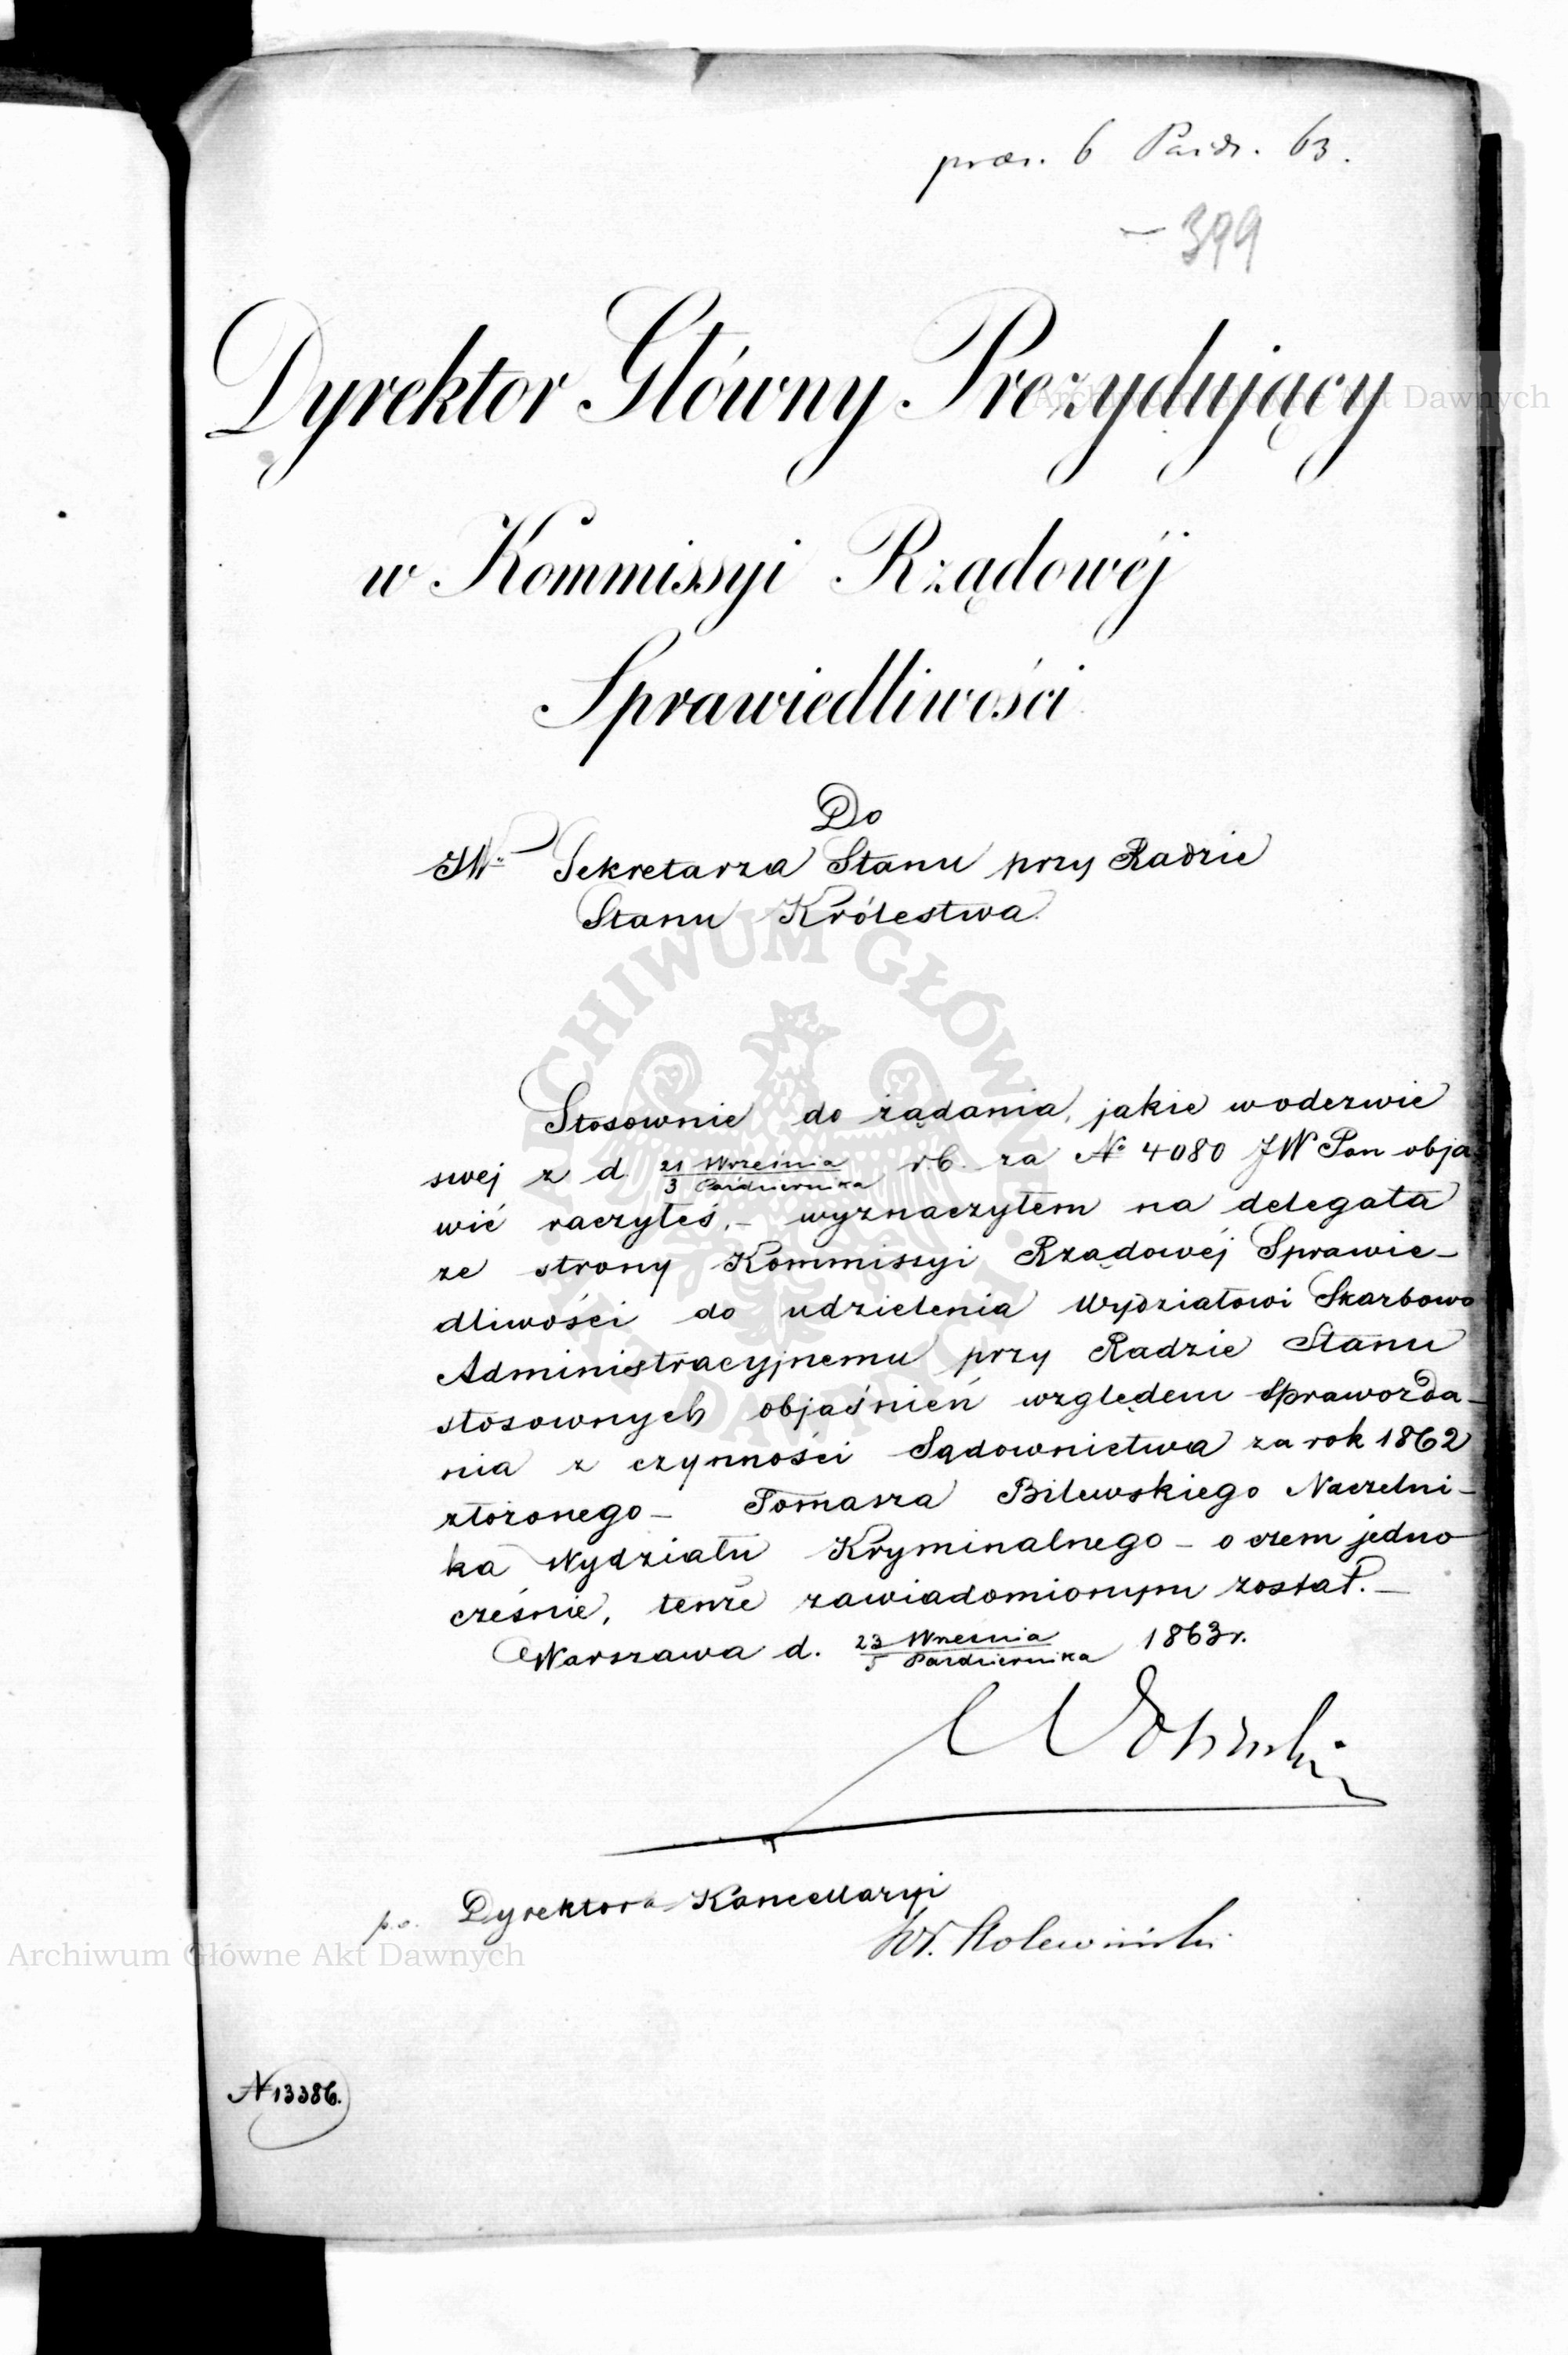 praes. 6 Paźdz. 63.
399
Dyrektor Główny Prezydujący
w Kommissyi Rządowéj
Sprawiedliwości
Do
JW. Sekretarza Stanu przy Radzie
Stanu Królestwa.
Stosownie do żądania, jakie w odezwie
swej z d. 21 Września / 3 Października r.b. za № 4080 JW Pan obja
wić raczyłeś, – wyznaczyłem na delegata
ze strony Kommissyi Rządowéj Sprawie–
dliwości do udzielenia Wydziałowi Skarbowo
Administracyjnemu przy Radzie Stanu
stosownych objaśnień względem Sprawozda–
nia z czynności Sądownictwa za rok 1862
złożonego – Tomasza Bilewskiego Naczelni–
ka Wydziału Kryminalnego – o czem jedno
cześnie, tenże zawiadomionym został. –
Warszawa d. 23 Września / 5 Października 1863 r.
p.o. Dyrektora Kancellaryi
№ 13386.
ARCHIWUM GŁÓWNE AKT DAWNYCH
Archiwum Główne Akt Dawnych
Archiwum Główne Akt Dawnych